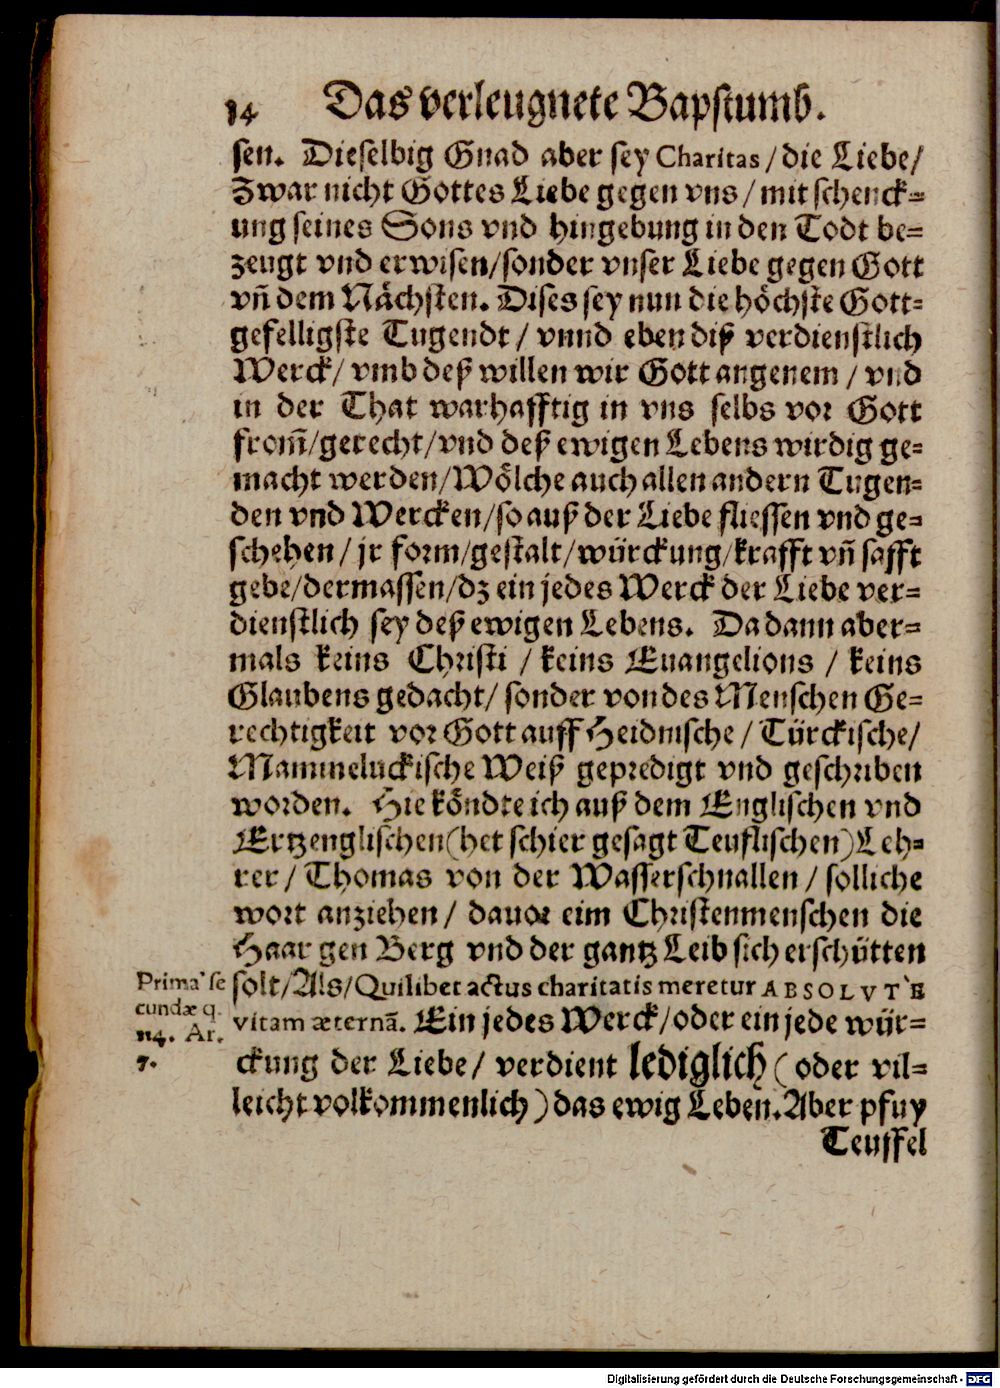 14 Das verleugnete Bapstumb.
sen. Dieselbig Gnad aber sey Charitas/die Liebe/
Zwar nicht Gottes Liebe gegen vns/mit schenck=
ung seines Sons vnd hingebung in den Todt be=
zeugt vnd erwisen/sonder vnser Liebe gegen Gott
vñ dem Nächsten. Dises sey nun die höchste Gott=
gefelligste Tugendt/ vnnd eben diß verdienstlich
Werck/ vmb deß willen wir Gott angenem/vnd
in der That warhafftig in vns selbs vor Gott
from̃/gerecht/vnd deß ewigen Lebens wirdig ge=
macht werden/Wölche auch allen andern Tugen=
den vnd Wercken/so auß der Liebe fliessen vnd ge=
schehen/jr form/gestalt/würckung/krafft vñ safft
gebe/dermassen/dz ein jedes Werck der Liebe ver=
dienstlich sey deß ewigen Lebens. Da dann aber=
mals keins Christi / keins Euangelions / keins
Glaubens gedacht/ sonder von des Menschen Ge=
rechtigkeit vor Gott auff Heidnische/Türckische/
Mammeluckische Weiß gepredigt vnd geschriben
worden. Hie köndte ich auß dem Englischen vnd
Ertzenglischen(het schier gesagt Teuflischen)Leh=
rer/Thomas von der Wasserschnallen/solliche
wort anziehen/ dauor eim Christenmenschen die
Haar gen Berg vnd der gantz Leib sich erschütten
solt/Als/Quilibet actus charitatis meretur ABSOLVTE
vitam æternã. Ein jedes Werck/oder ein jede wür=
ckung der Liebe/ verdient lediglich (oder vil=
leicht volkommenlich)das ewig Leben. Aber pfuy
Teuffel
Prima se
cundæ q.
114. Ar.
7.
Digitalisierung gefördert durch die Deutsche Forschungsgemeinschaft - DFG